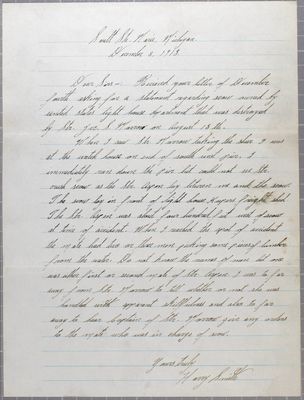 Sault Ste. Marie, Michigan.
December 8, 1913.
Dear Sir:- Received your letter of December
fourth asking for a statement regarding scow owned by
United States light house department that was destroyed
by Str. on August 13th.
When I saw Str. taking the shear I was
at the watch house on end of south west pier. I
immediately ran down the pier but could not see the
scow as the Str. lay between me and the scow.
The scow lay in front of light house Keepers
The Str. was about four hundred feet west of scow
at time of accident. When I reached the spot of accident
the mate had two or three men picking some pieces of timber
from the water. Do not know the names of men but one
was either first or second mate of the I was to far
away from Str. to tell whether or not she was
handled with apparent skillfulness and also to far
away to hear Captain of Str. give any orders
to the mate who was in charge of scow.
Yours truly
Harry Smith